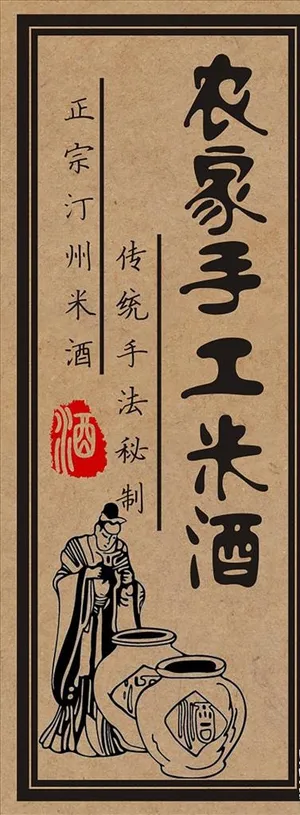 农家手工米酒
传统手法秘制
正宗汀州米酒
酒
酒
酒